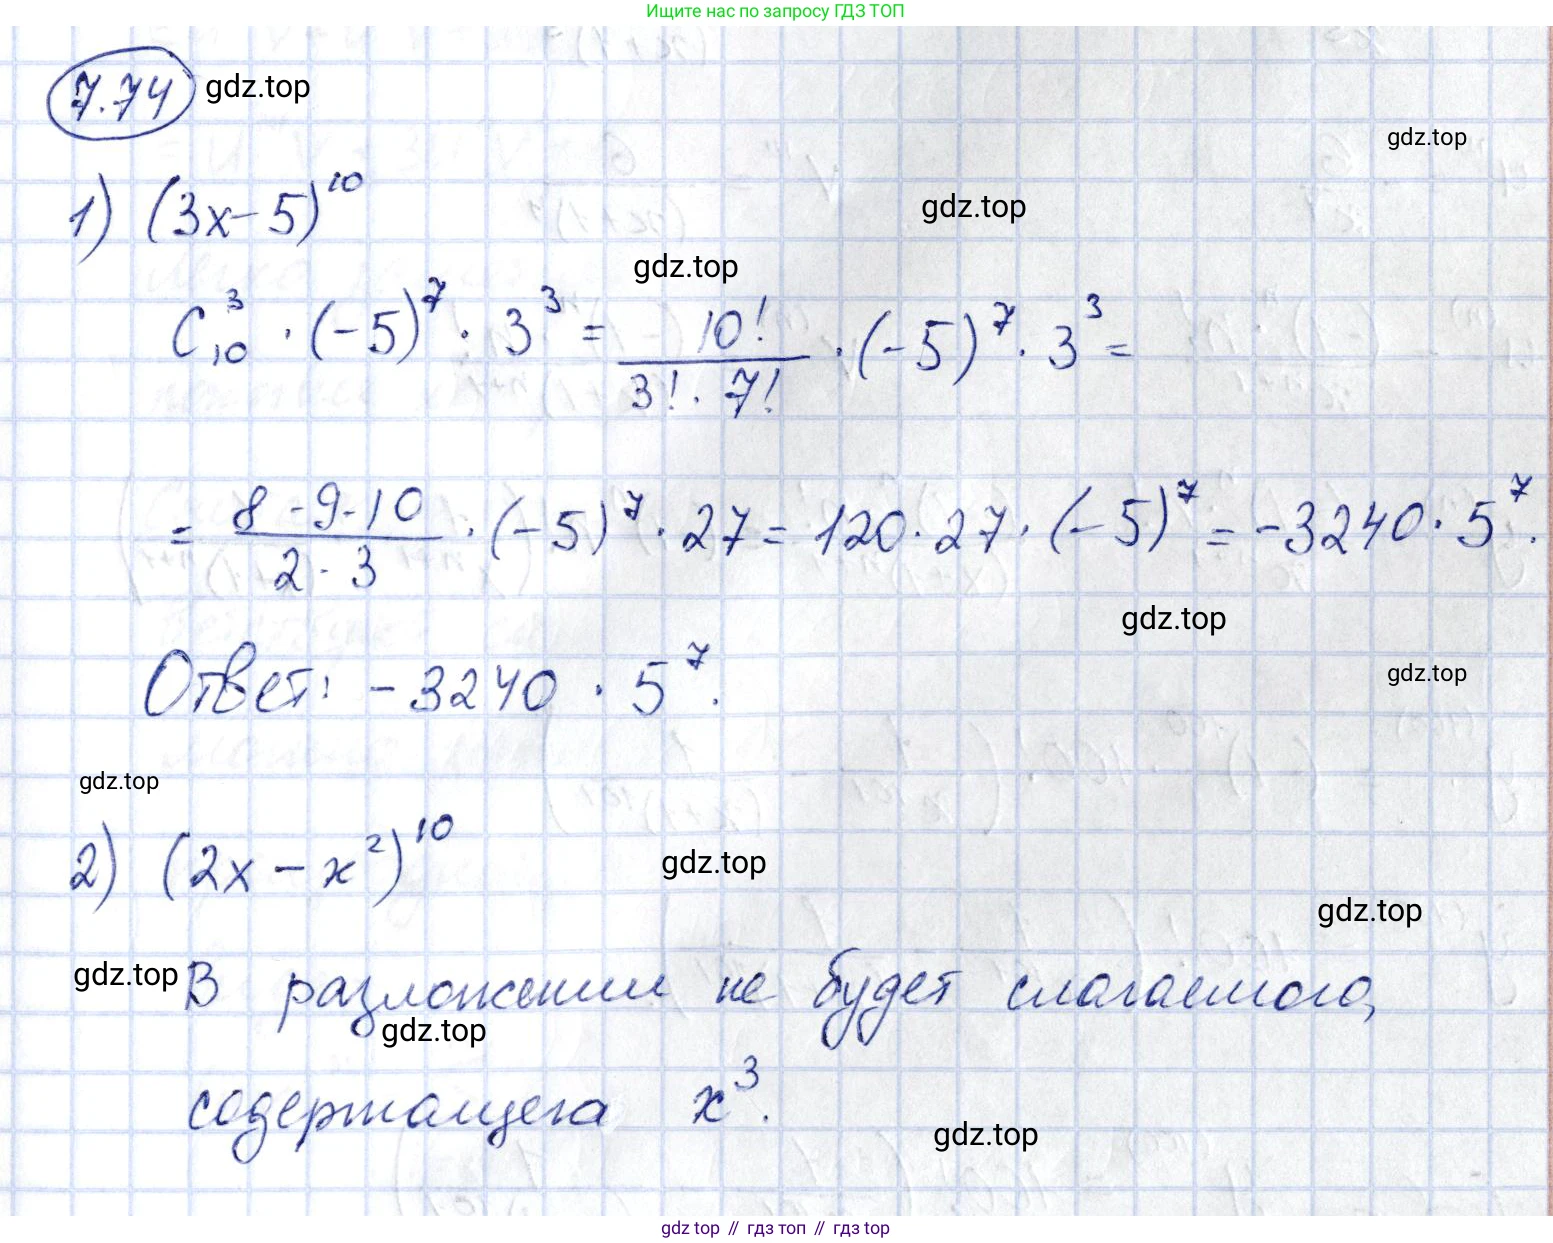 Ищите нас по запросу ГДЗ ТОП
7.74 gdz.top
gdz.top
1) (3x-5)^10
gdz.top
gdz.top
C_10^3 · (-5)^7 · 3^3 = 10!/(3! · 7!) · (-5)^7 · 3^3 =
= (8·9·10)/(2·3) · (-5)^7 · 27 = 120 · 27 · (-5)^7 = -3240 · 5^7.
gdz.top
gdz.top
Ответ: -3240 · 5^7.
gdz.top
2) (2x - x^2)^10
gdz.top
gdz.top
gdz.top В разложении не будет слагаемого,
gdz.top
содержащего x^3.
gdz.top
gdz top // гдз топ // гдз top